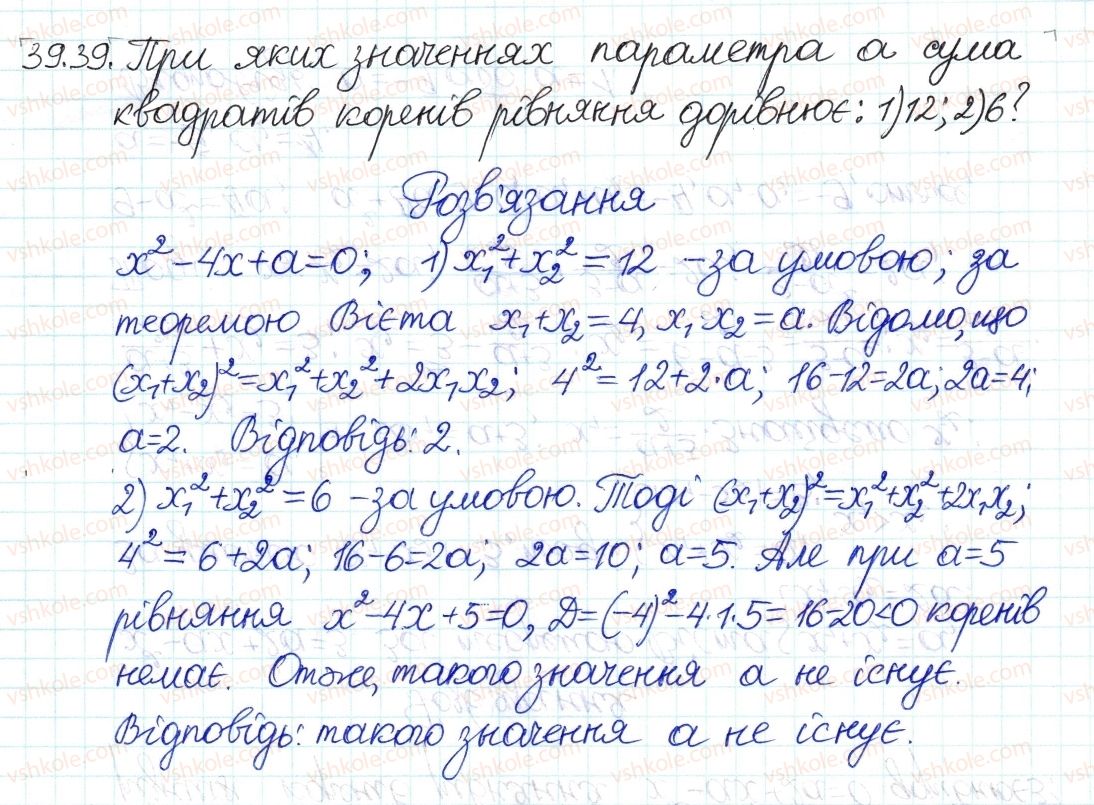 39.39. При яких значеннях параметра а сума
квадратів коренів рівняння дорівнює: 1) 12; 2) 6?
Розв'язання
x²-4x+a=0; 1) x₁²+x₂²=12 -за умовою; за
теоремою Вієта x₁+x₂=4, x₁·x₂=a. Відомо, що
(x₁+x₂)²=x₁²+x₂²+2x₁x₂; 4²=12+2·a; 16-12=2a; 2a=4;
a=2. Відповідь: 2.
2) x₁²+x₂²=6 -за умовою. Тоді (x₁+x₂)²=x₁²+x₂²+2x₁x₂;
4²=6+2a; 16-6=2a; 2a=10; a=5. Але при a=5
рівняння x²-4x+5=0, D=(-4)²-4·1·5=16-20<0 коренів
немає. Отже, такого значення а не існує.
Відповідь: такого значення а не існує.